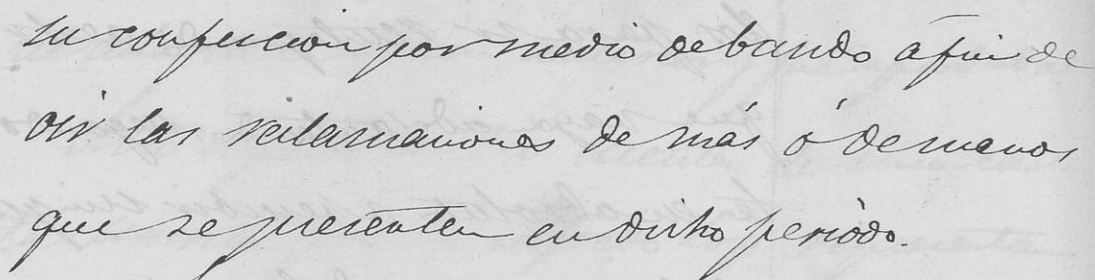 su confeccion por medio de bando á fin de
oir las reclamaciones de más ó de menos
que se presenten en dicho periódo.